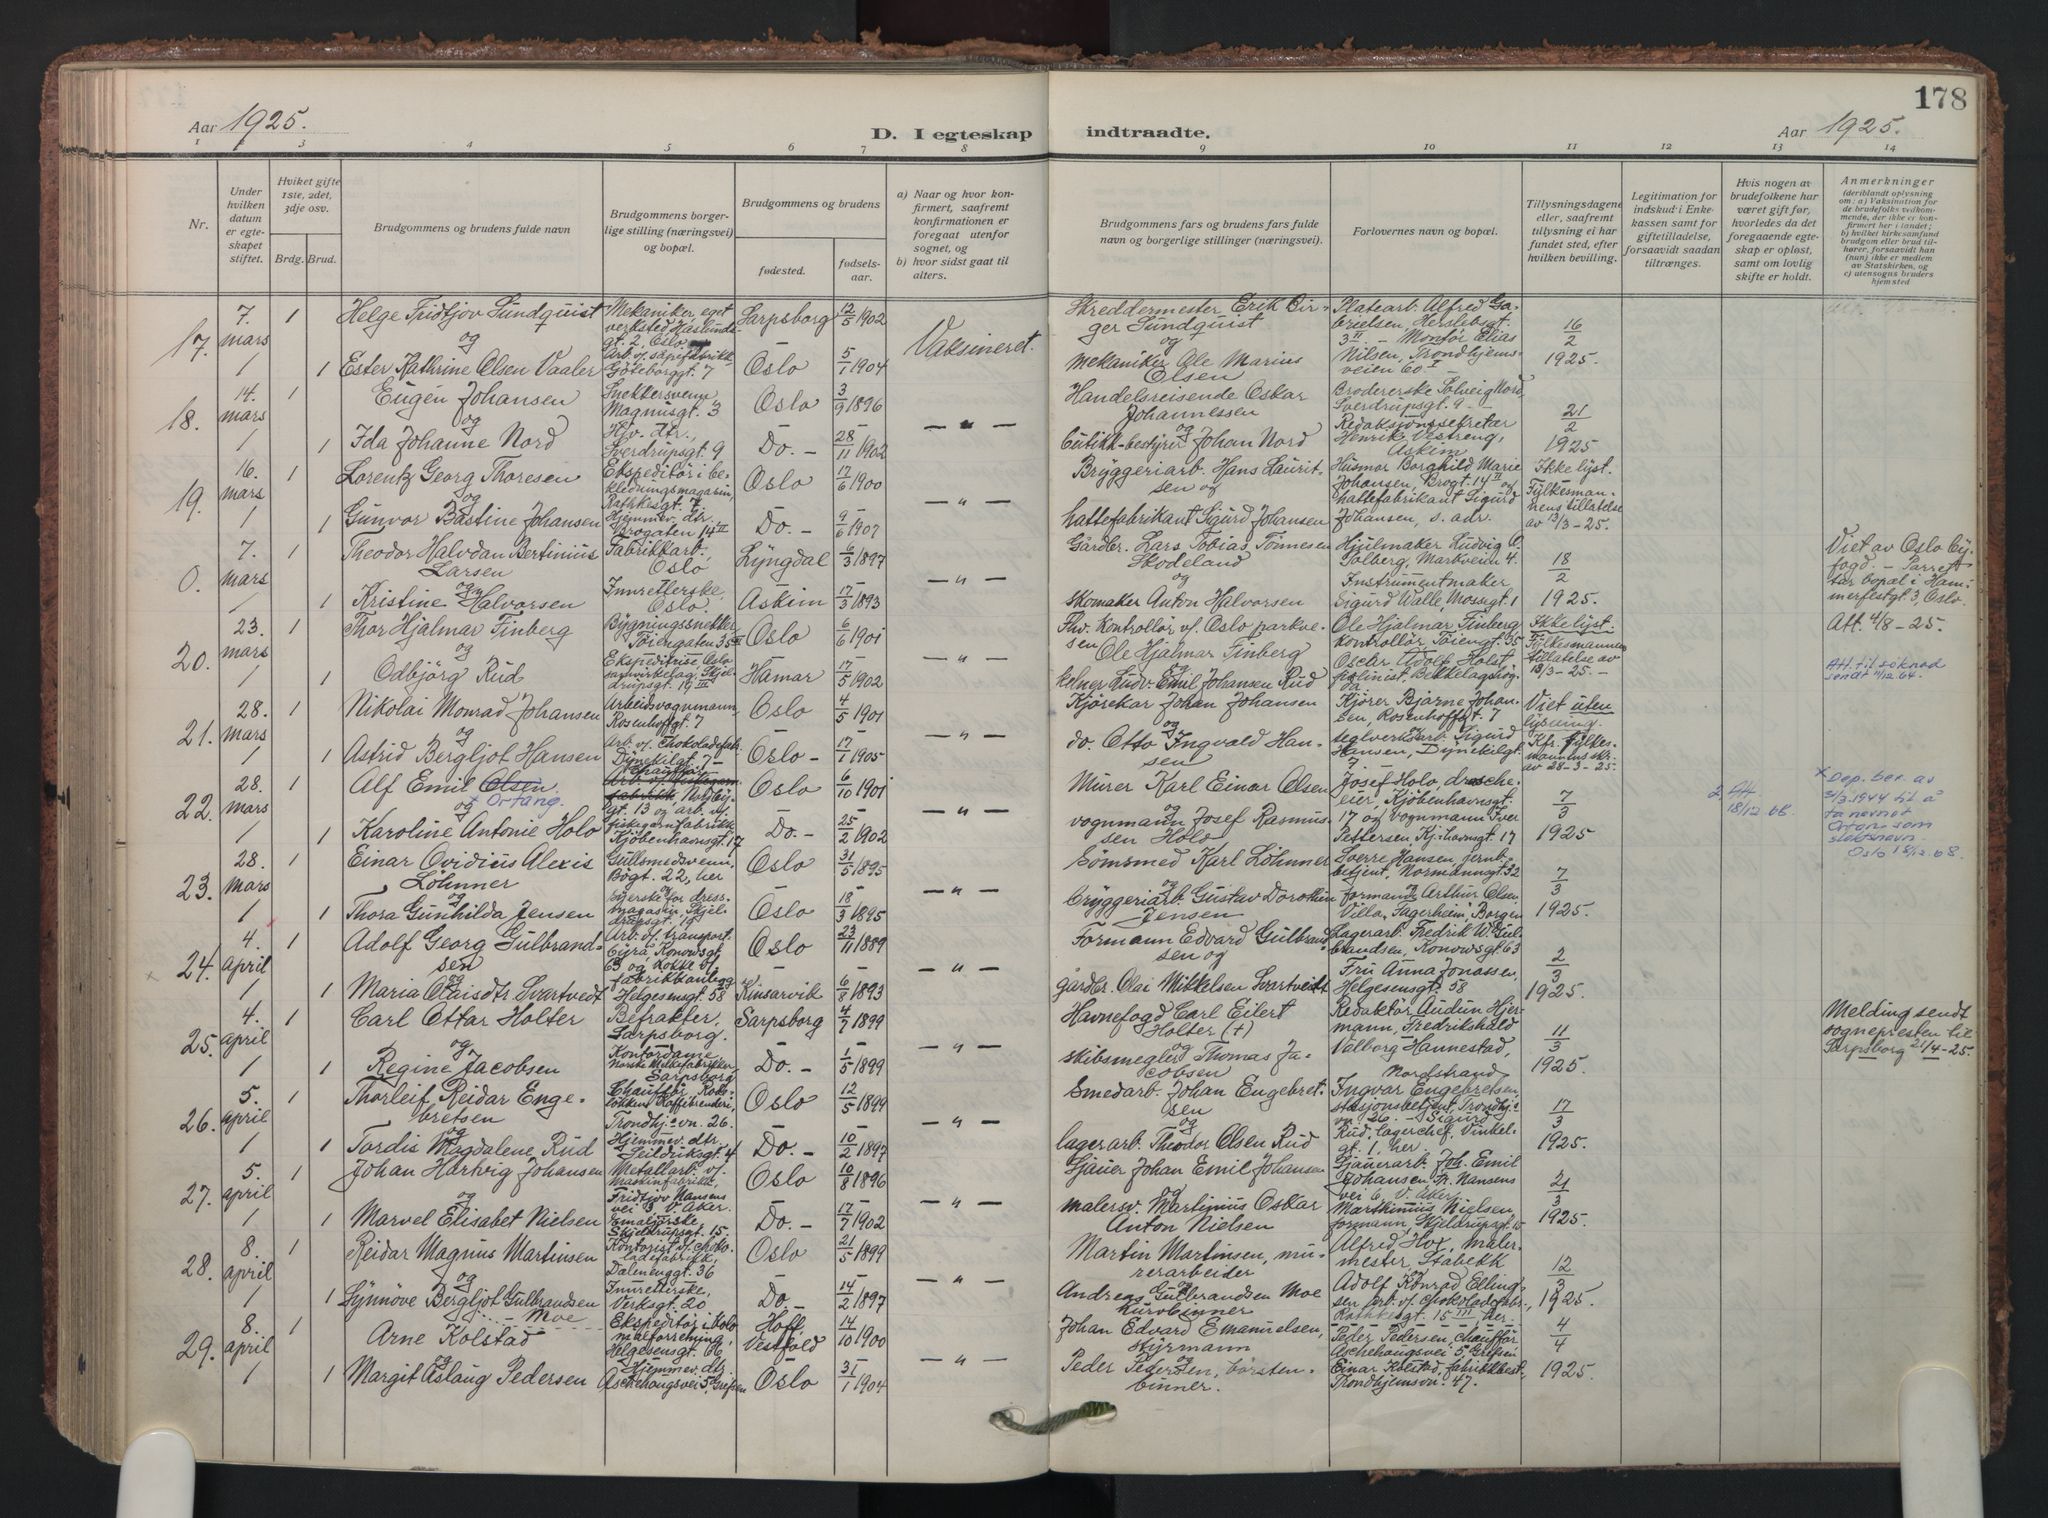 178
Aar 1925.
D. I egteskap
indtraadte.
Aar 1925.
1 2 3 4 5 6 7 8 9 10 11 12 13 14
Nr.
Under hvilken datum er egteskapet stiftet.
Hviket gifte 1ste, 2det, 3dje osv.
Brdg. Brud.
Brudgommens og brudens fulde navn
Brudgommens borgerlige stilling (næringsvei) og bopæl.
Brudgommens og brudens
fødested.
fødselsaar.
a) Naar og hvor konfirmert, saafremt konfirmationen er foregaat utenfor sognet, og
b) hvor sidst gaat til alters.
Brudgommens fars og brudens fars fulde navn og borgerlige stillinger (næringsvei).
Forlovernes navn og bopæl.
Tillysningsdagene eller, saafremt tillysning ei har fundet sted, efter hvilken bevilling.
Legitimation for indskud i Enkekassen samt for giftetilladelse, forsaavidt saadan tiltrænges.
Hvis nogen av brudefolkene har været gift før, hvorledes da det foregaaende egteskap er opløst, samt om lovlig skifte er holdt.
Anmerkninger
(deriblandt oplysning om: a) Vaksination for de brudefolks vedkommende, der ikke er konfirmert her i landet; b) hvilket kirkesamfund brudgom eller brud tilhører, forsaavidt han (hun) ikke er medlem av Statskirken, og c) utensogns bruders hjemsted
17. 7. mars 1 Helge Fridtjov Sundquist Mekaniker, eget verksted, Haslunds- gt. 2, Oslo. Sarpsborg 12/5 1902 Vaksineret. Skreddermester Erik Birger Sundquist Platearb. Alfred Gabrielsen, Herslebsgt. 3 II - Montör Elias 16/2
og
1 1 Ester Kathrine Olsen Vaaler Arb. v. såpefabrikk Göteborggt. 7 Oslo 5/1 1904 mekaniker Ole Marius Olsen Nilsen, Trondhjemsveien 60 I 1925.
18. 14. mars 1 Eugén Johansen Snekkersvenn Magnusgt. 3 Oslo 3/9 1896 — " — Handelsreisende Oskar Johannessen Brodererske Solveig Nord Sverdrupsgt. 9 - 21/2
og
1 1 Ida Johanne Nord Hjv. dtr., Sverdrupsgt. 9 Do. - 28/11 1902 butikk-bestyrer Johan Nord Redaksjonssekretær Henrik Vestreng, Askim 1925
19. 16. mars 1 Lorentz Georg Thoresen Ekspeditör i bekledningsmagasin, Rathkesgt. 7 Oslo 17/6 1900 — " — Bryggeriarb. Hans Lauritsen og Husmor Borghild Marie Johansen, Brogt. 14 II og Ikke lyst. Fylkesman-
og
1 1 Gunvor Bastine Johansen Hjemmev. dtr. Brogaten 14 II Do. - 9/6 1907 hattefabrikant Sigurd Johansen hattefabrikant Sigurd Johansen, s. adr. nens tillatelse av 13/3-25.
0. 7. mars 1 Theodor Halvdan Bertinius Larsen Fabrikkarb. Oslo Lyngdal 6/3 1897 — " — Gårdbr. Lars Tobias Tönnesen Skodeland Hjulmaker Ludvig Solberg, Markveien 4. 18/2 Viet av Oslo byfogd. - Parret har bopæl i Hammerfestgt. 3, Oslo.
og
1 1 Kristine Halvorsen Innretterske, Oslo. Askim 17/3 1893 skomaker Anton Halvorsen Instrumentmaker Sigurd Walle, Mossegt. 1 1925.
20. 23. mars 1 Thor Hjalmar Finberg Bygningssnekker, Töiengaten 35 III Oslo 6/6 1901 — " — Fhv. Kontrollör vf. Oslo parkvesen Ole Hjalmar Finberg Ole Hjalmar Finberg kontrollör Töiengt. 35 Ikke lyst. Fylkesmannens tillatelse av 18/3-25. Att. 4/8-25.
og
1 1 Odbjörg Rud Ekspeditrise, Oslo samvirkelag. Skjeldrupsgt. 19 III Hamar 17/5 1902 kelner Ludv. Emil Johansen Rud Oscar Adolf Holst, Bekkelagshögda Att. til söknad sendt 11/12.64.
21. 28. mars 1 Nikolai Monrad Johansen Arbeidsvognmann, Rosenhoffgt. 7 Oslo 4/5 1901 — " — Kjörekar Johan Johansen Kjörer Bjarne Johansen, Rosenhoffgt. 7 Viet uten lysning.
og
1 1 Astrid Bergljot Hansen Arb. v. chokoladefabr. Dynekilgt. 7 - Oslo - 17/1 1905 do. Otto Ingvald Hansen teglverksarb. Sigurd Hansen, Dynekilgt. 7. - Kfr. fylkesmannens skr. av 28-3-25.
22. 28. mars 1 Alf Emil Olsen x Ortang. Chaufför Nordbygt. 13 og arb. v. Oslo 6/10 1901 — " — Murer Karl Einar Olsen Josef Holo, droscheeier, Kjöbenhavnsgt. 17 og Vognmann Iver 7/3 2 Att. 18/12.68. x Dep. bev. av 3/3.1944 til å ta navnet Ortang som slektsnavn. Oslo 18/12.68.
og
1 1 Karoline Antonie Holo fiskegarnfabrikk Kjöbenhavnsgt. 17 Do. - 25/2 1902 vognmann Josef Rasmussen Holo Pettersen Kj:havnsgt. 17 1925
23. 28. mars 1 Einar Ovidius Alexis Löhnner Gullsmedsvenn, Bögt. 22, her Oslo 31/5 1895 — " — Sömsmed Karl Löhnner Sverre Hansen, jernb. betjent, Normannsgt. 32 7/3
og
1 1 Thora Gunhilda Jensen syerske for dressmagasin, Skjeldrupsgt. Oslo 18/3 1895 bryggeriarb. Gustav Dorothin Jensen formann Arthur Olsen Villa "Fagerheim", Borgen 1925.
24. 4. april 1 Adolf Georg Gulbrandsen Arb. v. transportbyrå, Konowsgt. 63 og Oslo 23/11 1889 — " — Formann Edvard Gulbrandsen og Lagerarb. Fredrik W. Gulbrandsen, Konowsgt. 63 2/3
og
1 1 Maria Olaisdtr. Svartvedt kokke v. fabrikkanlegg Helgesensgt. 58 Kinsarvik 6/8 1893 gårdbr. Olai Mikkelsen Svartveitt Fru Anna Jonassen, Helgesensgt. 58 1925.
25. 4. april 1 Carl Ottar Holter Befrakter, Sarpsborg. Sarpsborg 4/7 1899 — " — Havnefogd Carl Eilert Holter (†) Redaktör Audun Hjermann, Fredrikshald 11/3 Melding sendt sognepresten til Sarpsborg 21/4-25.
og
1 1 Regine Jacobsen Kontordame Norske Melkefabrikker Sarpsborg Do. - 1/5 1899 skibsmegler Thomas Jacobsen Valborg Hannestad, Nordstrand 1925.
26. 5. april 1 Thorleif Reidar Engebretsen Chaufför Rodelökken Kaffibrenderi, Trondhj:vn. 26. Oslo 12/5 1899 — " — Smedarb. Johan Engebretsen Ingvar Engebretsen, stasjonsbetjent, Trondhj:vn. 26. - Sigurd 17/3
og
1 1 Tordis Magdalene Rud Hjemmev. dtr. Seilduksgt. 4 Do. - 10/2 1897 lagerarb. Theodor Olsen Rud Rud, lagerchef, Vinkelgt. 1, her. 1925.
27. 5. april 1 Johan Hartvig Johansen Metallarb. v. maskinfabrikk, Fridtjov Nansens vei 6 V. Aker. Oslo 10/8 1896 — " — Gjauer Johan Emil Johansen Gjauerarb. Joh. Emil Johansen, Fr. Nansens vei 6, V. Aker. 21/3
og
1 1 Marvel Elisabet Nielsen Emaljörske Skjeldrupsgt. 15. Do. - 17/7 1902 malersv. Martinius Oskar Anton Nielsen Marthinius Nielsen formann, Skjeldrupsgt. 15 1925.
28. 8. april 1 Reidar Magnus Martinsen Kontorist v. chokoladefabrikk, Dalenenggt. 36 Oslo 21/5 1899 — " — Martin Martinsen, murerarbeider Alfred Hox, malermester, Stabekk 12/3
og
1 1 Synnöve Bergljot Gulbrandsen Moe Innretterske, Verksgt. 20 Do. 14/2 1897 Andreas Gulbrandsen Moe Kurvbinner Adolf Konrad Ellingsen arb. v. chokoladefabr., Rathkesgt. 15 III, her. 1925.
29. 8. april 1 Arne Kolstad Ekspeditör i kolonialforretning, Helgesensgt. 66 Hoff Vestfold 14/10 1900 — " — Johan Edvard Emanuelsen, styrmann Peder Pedersen, chaufför Aschehougsvei 5, Grefsen 4/4
og
1 1 Margit Aslaug Pedersen Hjemmev. dtr. Aschehougsvei 5, Grefsen Oslo 31/1 1904 Peder Pedersen, börstenbinner. Einar Kolstad, fabrikkbest., Trondhjemsvn. 47. 1925.